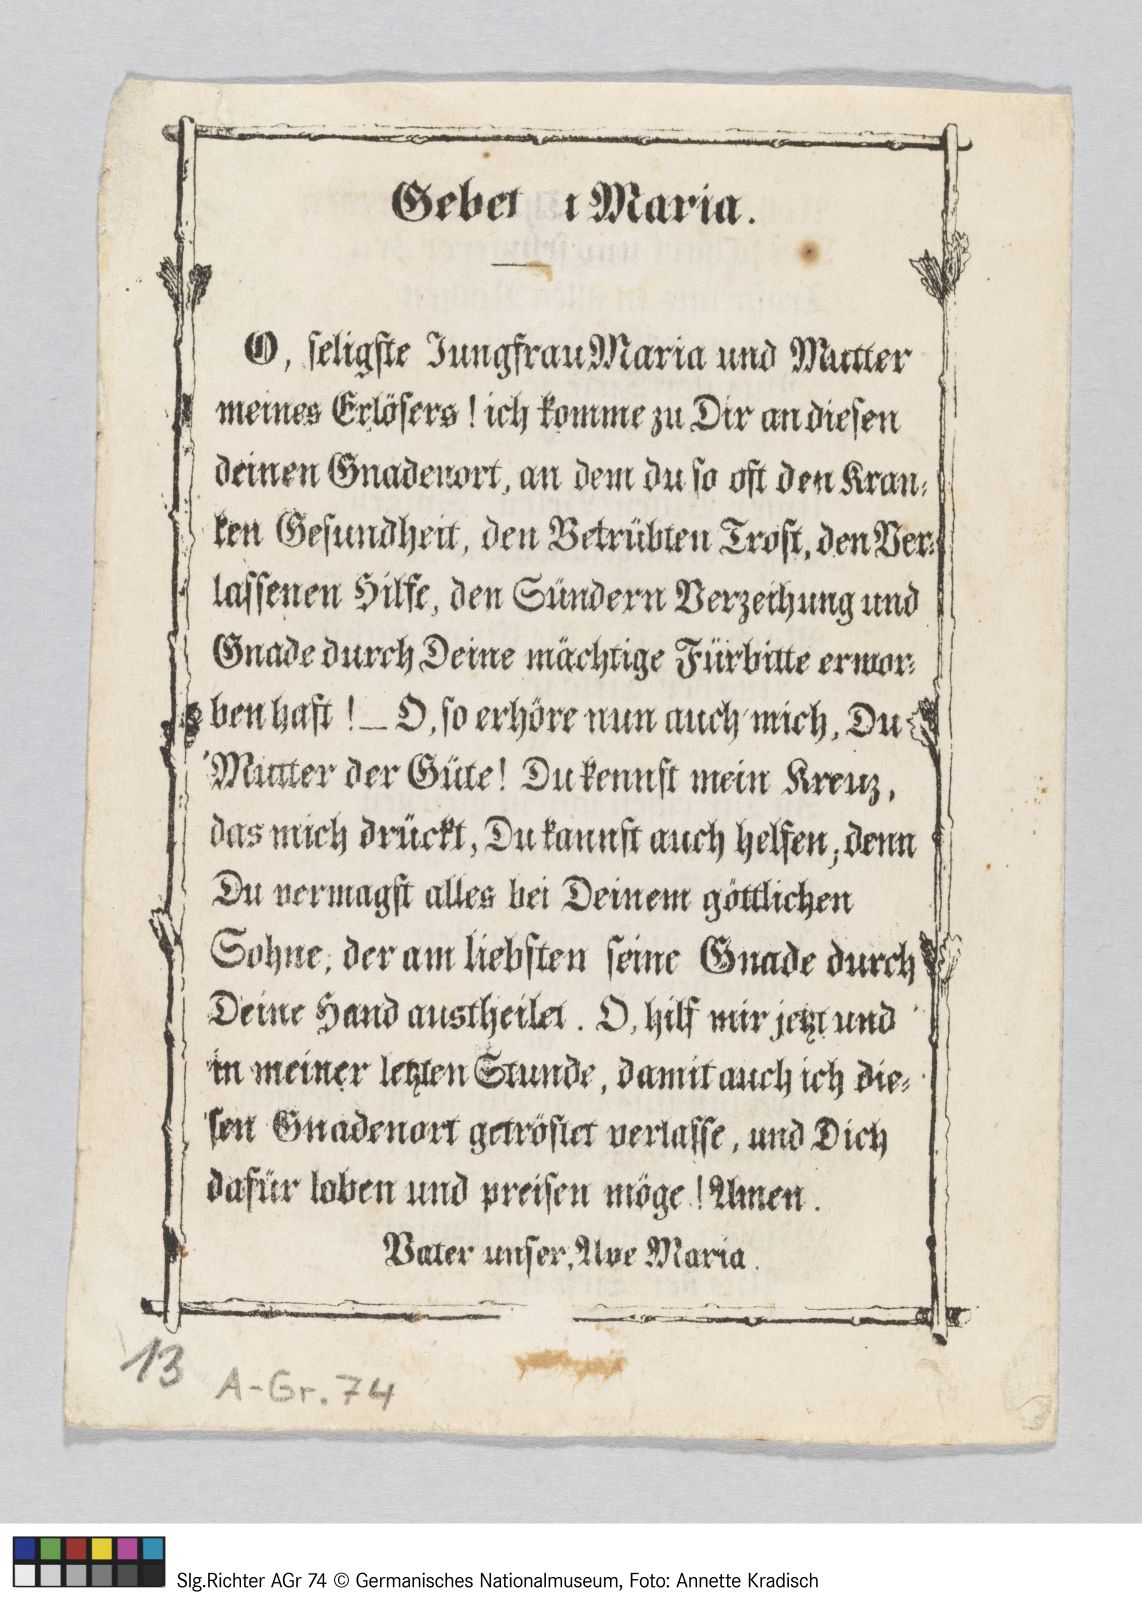 Gebet Maria.
O, seligste Jungfrau Maria und Mutter
meines Erlösers! ich komme zu Dir an diesen
deinen Gnadenort, an dem du so oft den Kran-
ken Gesundheit, den Betrübten Trost, den Ver-
lassenen Hilfe, den Sündern Verzeihung und
Gnade durch Deine mächtige Fürbitte erwor-
ben hast! _ O, so erhöre nun auch mich, Du
Mutter der Güte! Du kennst mein Kreuz,
das mich drückt, Du kannst auch helfen; denn
Du vermagst alles bei Deinem göttlichen
Sohne, der am liebsten seine Gnade durch
Deine Hand austheilet. O, hilf mir jetzt und
in meiner letzten Stunde, damit auch ich die-
sen Gnadenort getröstet verlasse, und Dich
dafür loben und preisen möge! Amen.
Vater unser, Ave Maria.
13
A-Gr. 74
Slg.Richter AGr 74 © Germanisches Nationalmuseum, Foto: Annette Kradisch